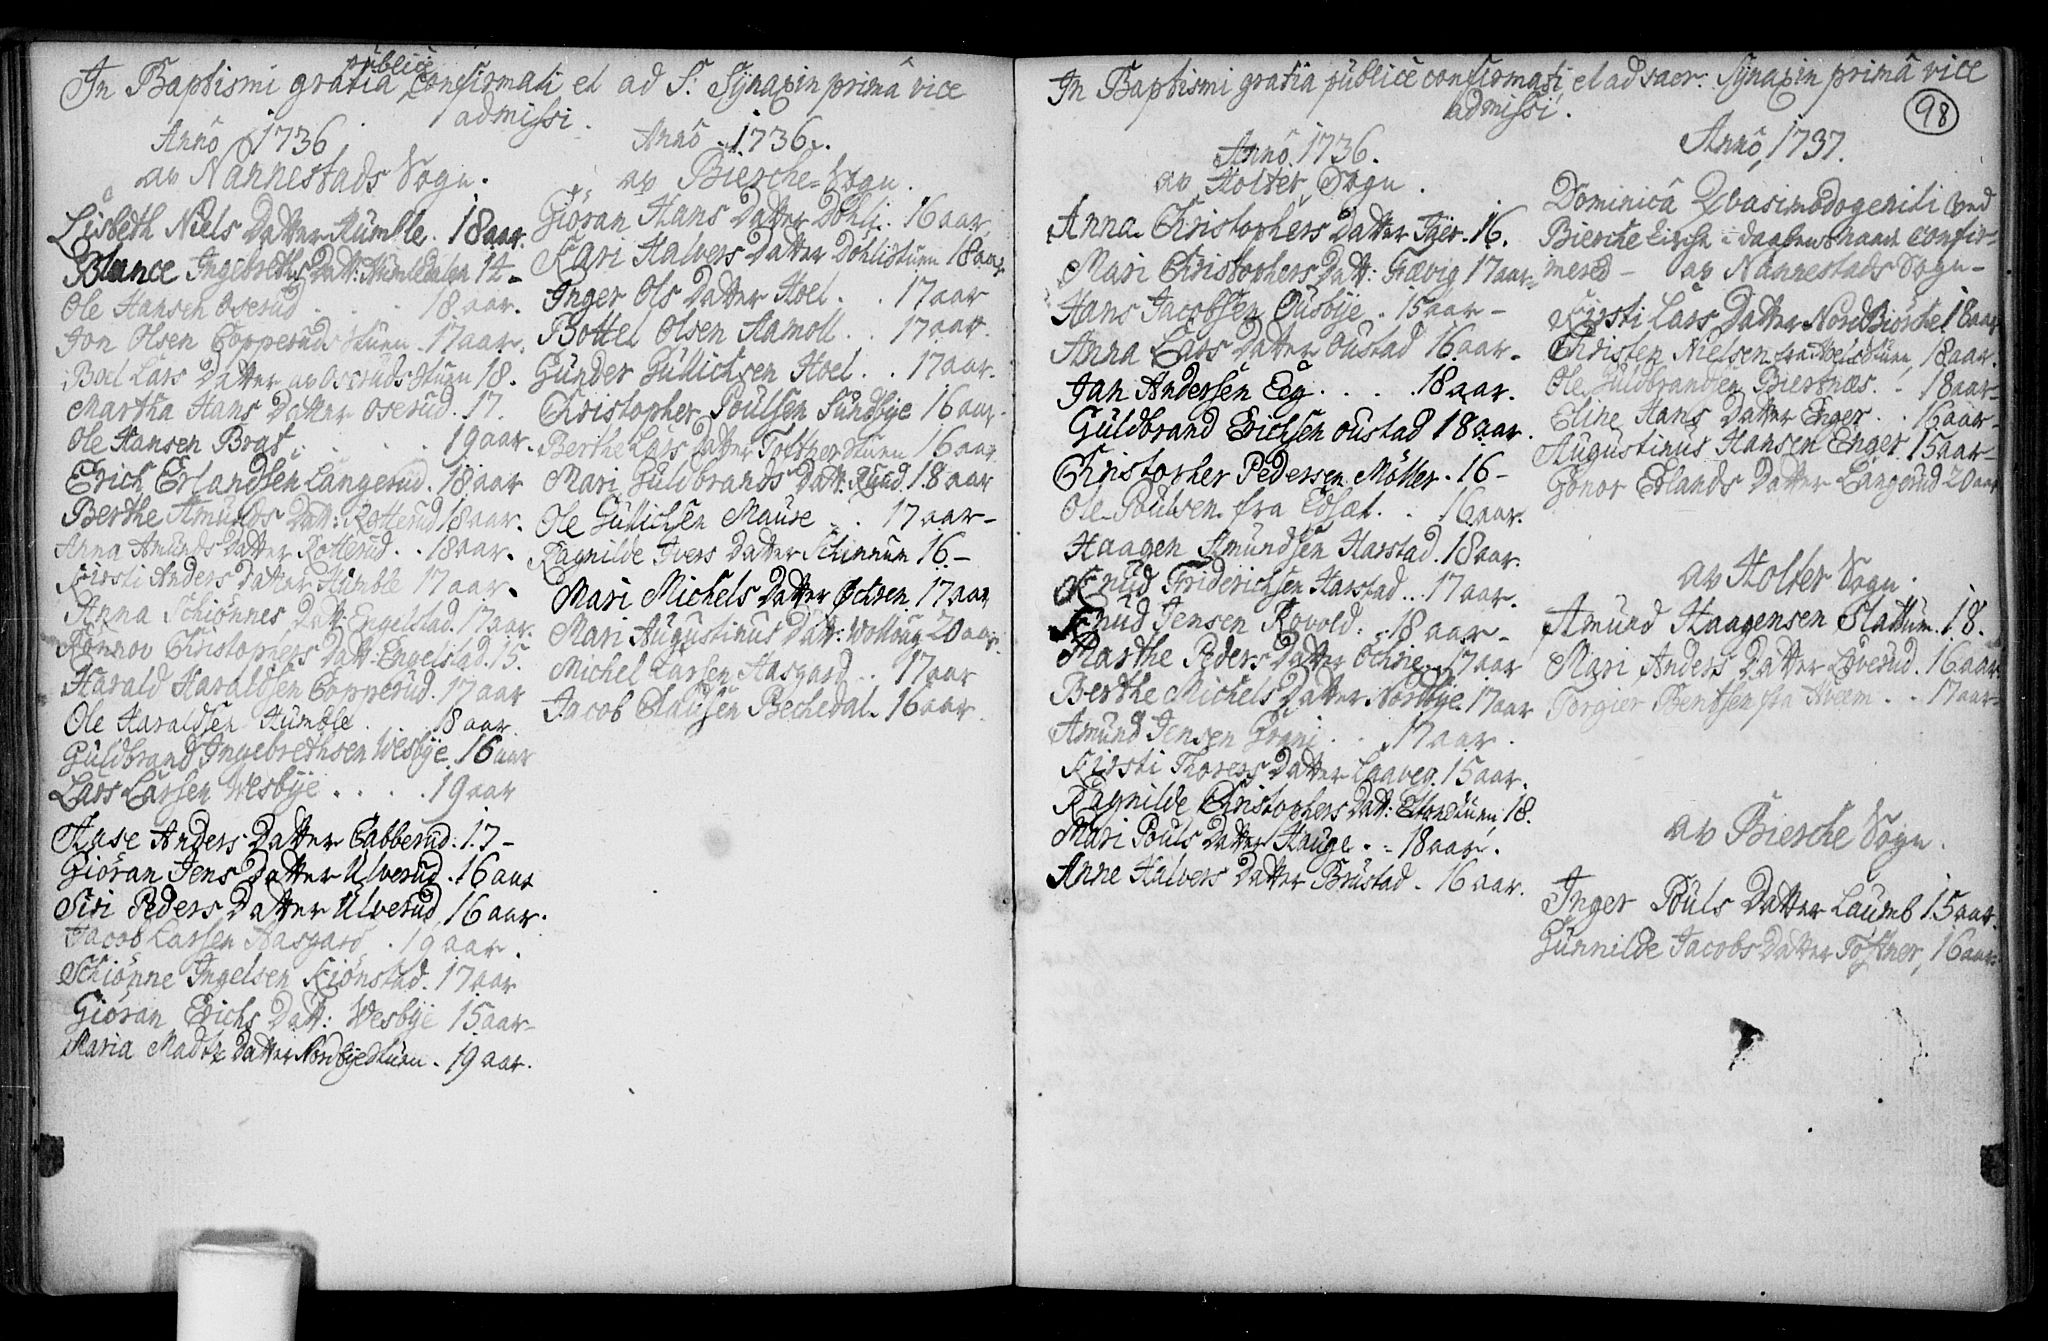 In Baptismi gratia publice confirmati et ad S. Synaxin primâ vice
admissi.
Anno 1736
av Nannestads Sogn.
Lisbeth Niels Datter Humble. 18 aar.
Blance Ingebreths Datt: Humledalen 14 -
Ole Hansen Oserud . . . 18. aar.
Jon Olsen Copperudstuen. 17 aar.
Boel Lars Datter av Oserudsstuen 18.
Martha Hans Datter Oserud. 17.
Ole Hansen . . . 19 aar.
Erich Erlandsen Langerud. 18 aar
Berthe Amunds Datt: Rotterud 18 aar.
Anna Amunds Datter Rotterud . . 18 aar.
Kirsti Anders Datter Humble 17 aar.
Anna Schiönnes Datt: Engelstad. 17 aar.
Rönnov Christophers Datt: Engelstad. 15.
Harald Haraldsen Copperud. 17 aar
Ole Haraldsen Humble . . 18 aar.
Guldbrand Ingebrethsen Wesbye. 16 aar
Lars Larsen Wesbye . . . . 19 aar
Aase Anders Datter Cabberud: 17 -
Giöran Jens Datter Ulverud. 16 aar
Siri Peders Datter Ulverud 16 aar.
Jacob Larsen Aasgard . 19 aar.
Schiönne Ingelsen Kiönstad. 17 aar
Giöran Erichs Datt: Wesbye 15 aar -
Maria Madtz Datter Nordbyestuen. 19 aar.
Anno 1736.
av Bierche-Sogn.
Giöran Hans Datter Dohli. 16 aar.
Kari Halvers Datter Dohlistuen 18 aar
Inger Ols Datter Hoel . . 17 aar
Bottel Olsen Aamoll . . 17 aar.
Gunder Gullichsen Hoel . . 17 aar.
Christopher Poulsen Sundbye 16 aar.
Berthe Lars Datter stuen 16 aar
Mari Guldbrands Datt: Ruud. 18 aar
Ole Gullichsen Mause . . 17 aar -
Ragnilde Ivers Datter 16 -
Mari Michels Datter Ochren. 17 aar
Mari Augustinus Datt: 20 aar.
Michel Larsen Aasgard . . 17 aar
Jacob Clausen Bechedal. 16 aar.
In Baptismi gratia publice confirmati et ad sacr: Synaxin primâ vice
admissi.
98
Anno 1736.
av Holter Sogn.
Anna Christophers Datter Tger. 16.
Mari Christophers Datt: 17 aar -
Hans Jacobsen Ousbye . 15 aar -
Anna Lars Datter Oustad 16 aar.
Jan Andersen Eeg . . . . 18 aar.
Guldbrand Erichsen Oustad 18 aar.
Christopher Pedersen Möller. 16 -
Ole Poulsen fra . . 16 aar.
Haagen Amundsen Harstad. 18 aar.
Knud Friderichsen Harstad . . . 17 aar.
Knud Jensen Rovold . . 18 aar -
Marthe Peders Datter . . 17 aar
Berthe Michels Datter Nordbye. 17 aar
Amund Jensen . . 17 aar.
Kirsti Thorers Datter Laaveg. 15 aar.
Ragnilde Christophers Datt: 18.
Mari Pouls Datter Hauge . . 18 aar.
Anne Halvers Datter Brustad. 16 aar.
Anno 1737.
Dominica Qvasimodogeniti ved
Bierche Kirche i daabens naade confir-
mered - av Nannestads Sogn -
Kirsti Lars Datter NordBierche 18 aar
Christen Nielsen fra stuen 18 aar.
Ole Guldbrandsen Biertnæs . . 18 aar -
Eline Hans Datter Enger . 16 aar -
Augustinus Hansen Enger. 15 aar -
Gonor Erlands Datter Langerud 20 aar
av Holter Sogn.
Amund Haagensen Slattum. 18.
Mari Anders Datter Löverud. 16 aar.
Torgier Bentsen fra . . 17 aar -
av Bierche Sogn.
Inger Pouls Datter Laumb 15 aar.
Gunnilde Jacobs Datter Töftner, 16 aar.